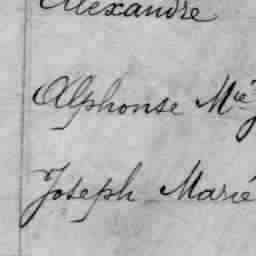 Alexandre
Alphonse Mié
Joseph Marié